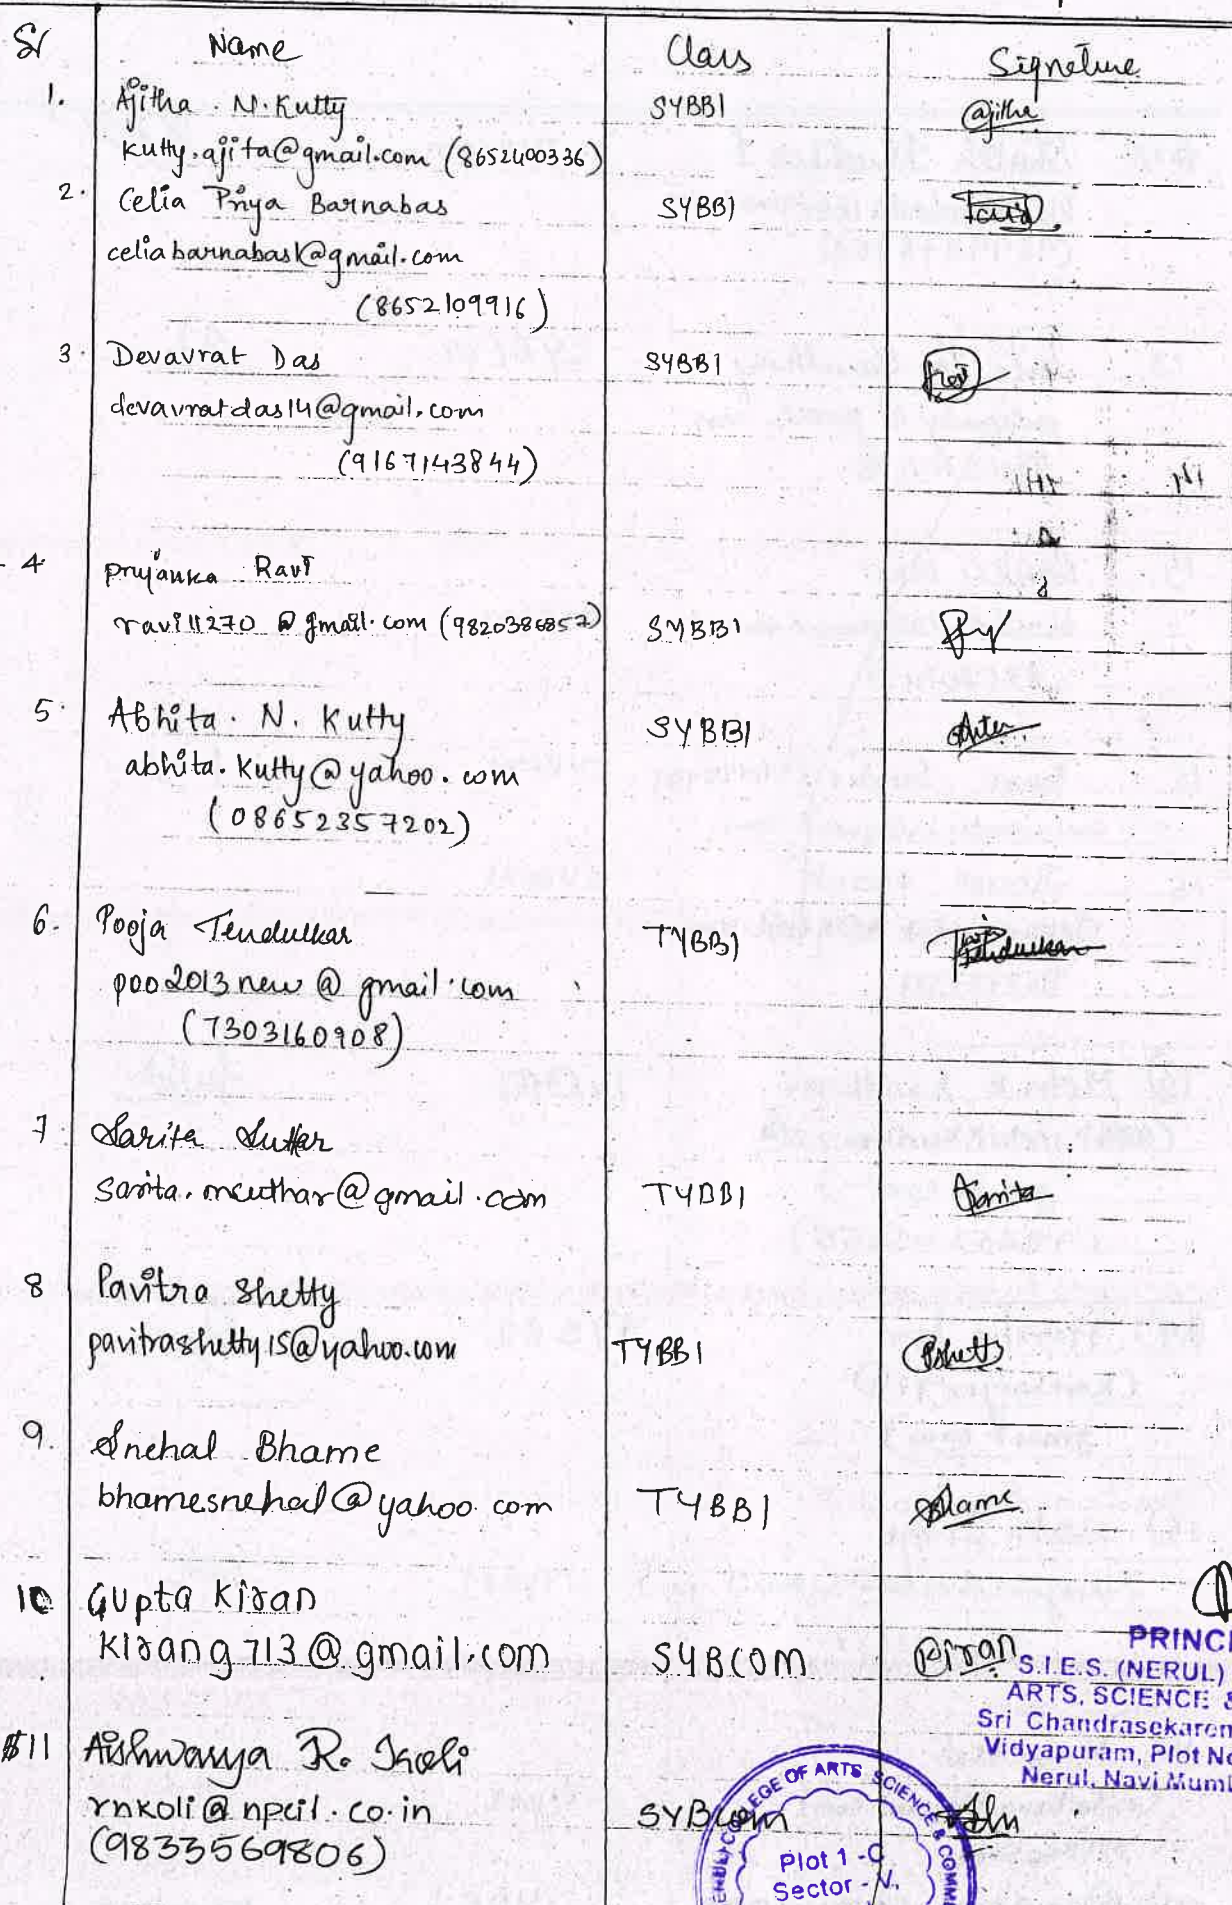 Sr Name Class Signature
1. Ajitha . N. Kutty SYBBI @jitha
kutty.ajita@gmail.com (8652400336)
2. Celia Priya Barnabas SYBBI
celiabarnabas1@gmail.com
(8652109916)
3. Devavrat Das SYBBI
devavratdas14@gmail.com
(9167143844)
4. priyanka Ravi
ravi11270@gmail.com (9820386857) SYBBI
5. Abhita. N. Kutty SYBBI
abhita.kutty@yahoo.com
(08652357202)
6. Pooja Tendulkar TYBBI Tendulkar
poo2013new@gmail.com
(7303160908)
7. Sarita Suthar
sarita.mcuthar@gmail.com TYBBI Sarita
8 Pavitra Shetty
pavitrashetty15@yahoo.com TYBBI Pshetty
9. Snehal Bhame
bhamesnehal@yahoo.com TYBBI Bhame
10 Gupta Kiran
kirang713@gmail.com SYBCOM Kiran
11 Aishwarya R. Koli
rnkoli@npcil.co.in SYBcom
(9833569806)
PRINCI
S.I.E.S. (NERUL)
ARTS, SCIENCE &
Sri Chandrasekaren
Vidyapuram, Plot No
Nerul, Navi Mumb
COLLEGE OF ARTS SCIENCE & COMM
Plot 1 -C
Sector - V.,